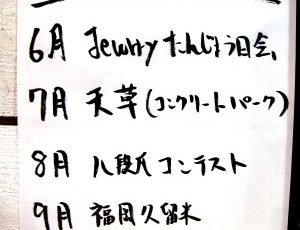 6月 Jewlry たんじょう日会、
7月 天草(コンクリートパーク)
8月 八段氏コンテスト
9月 福岡久留米